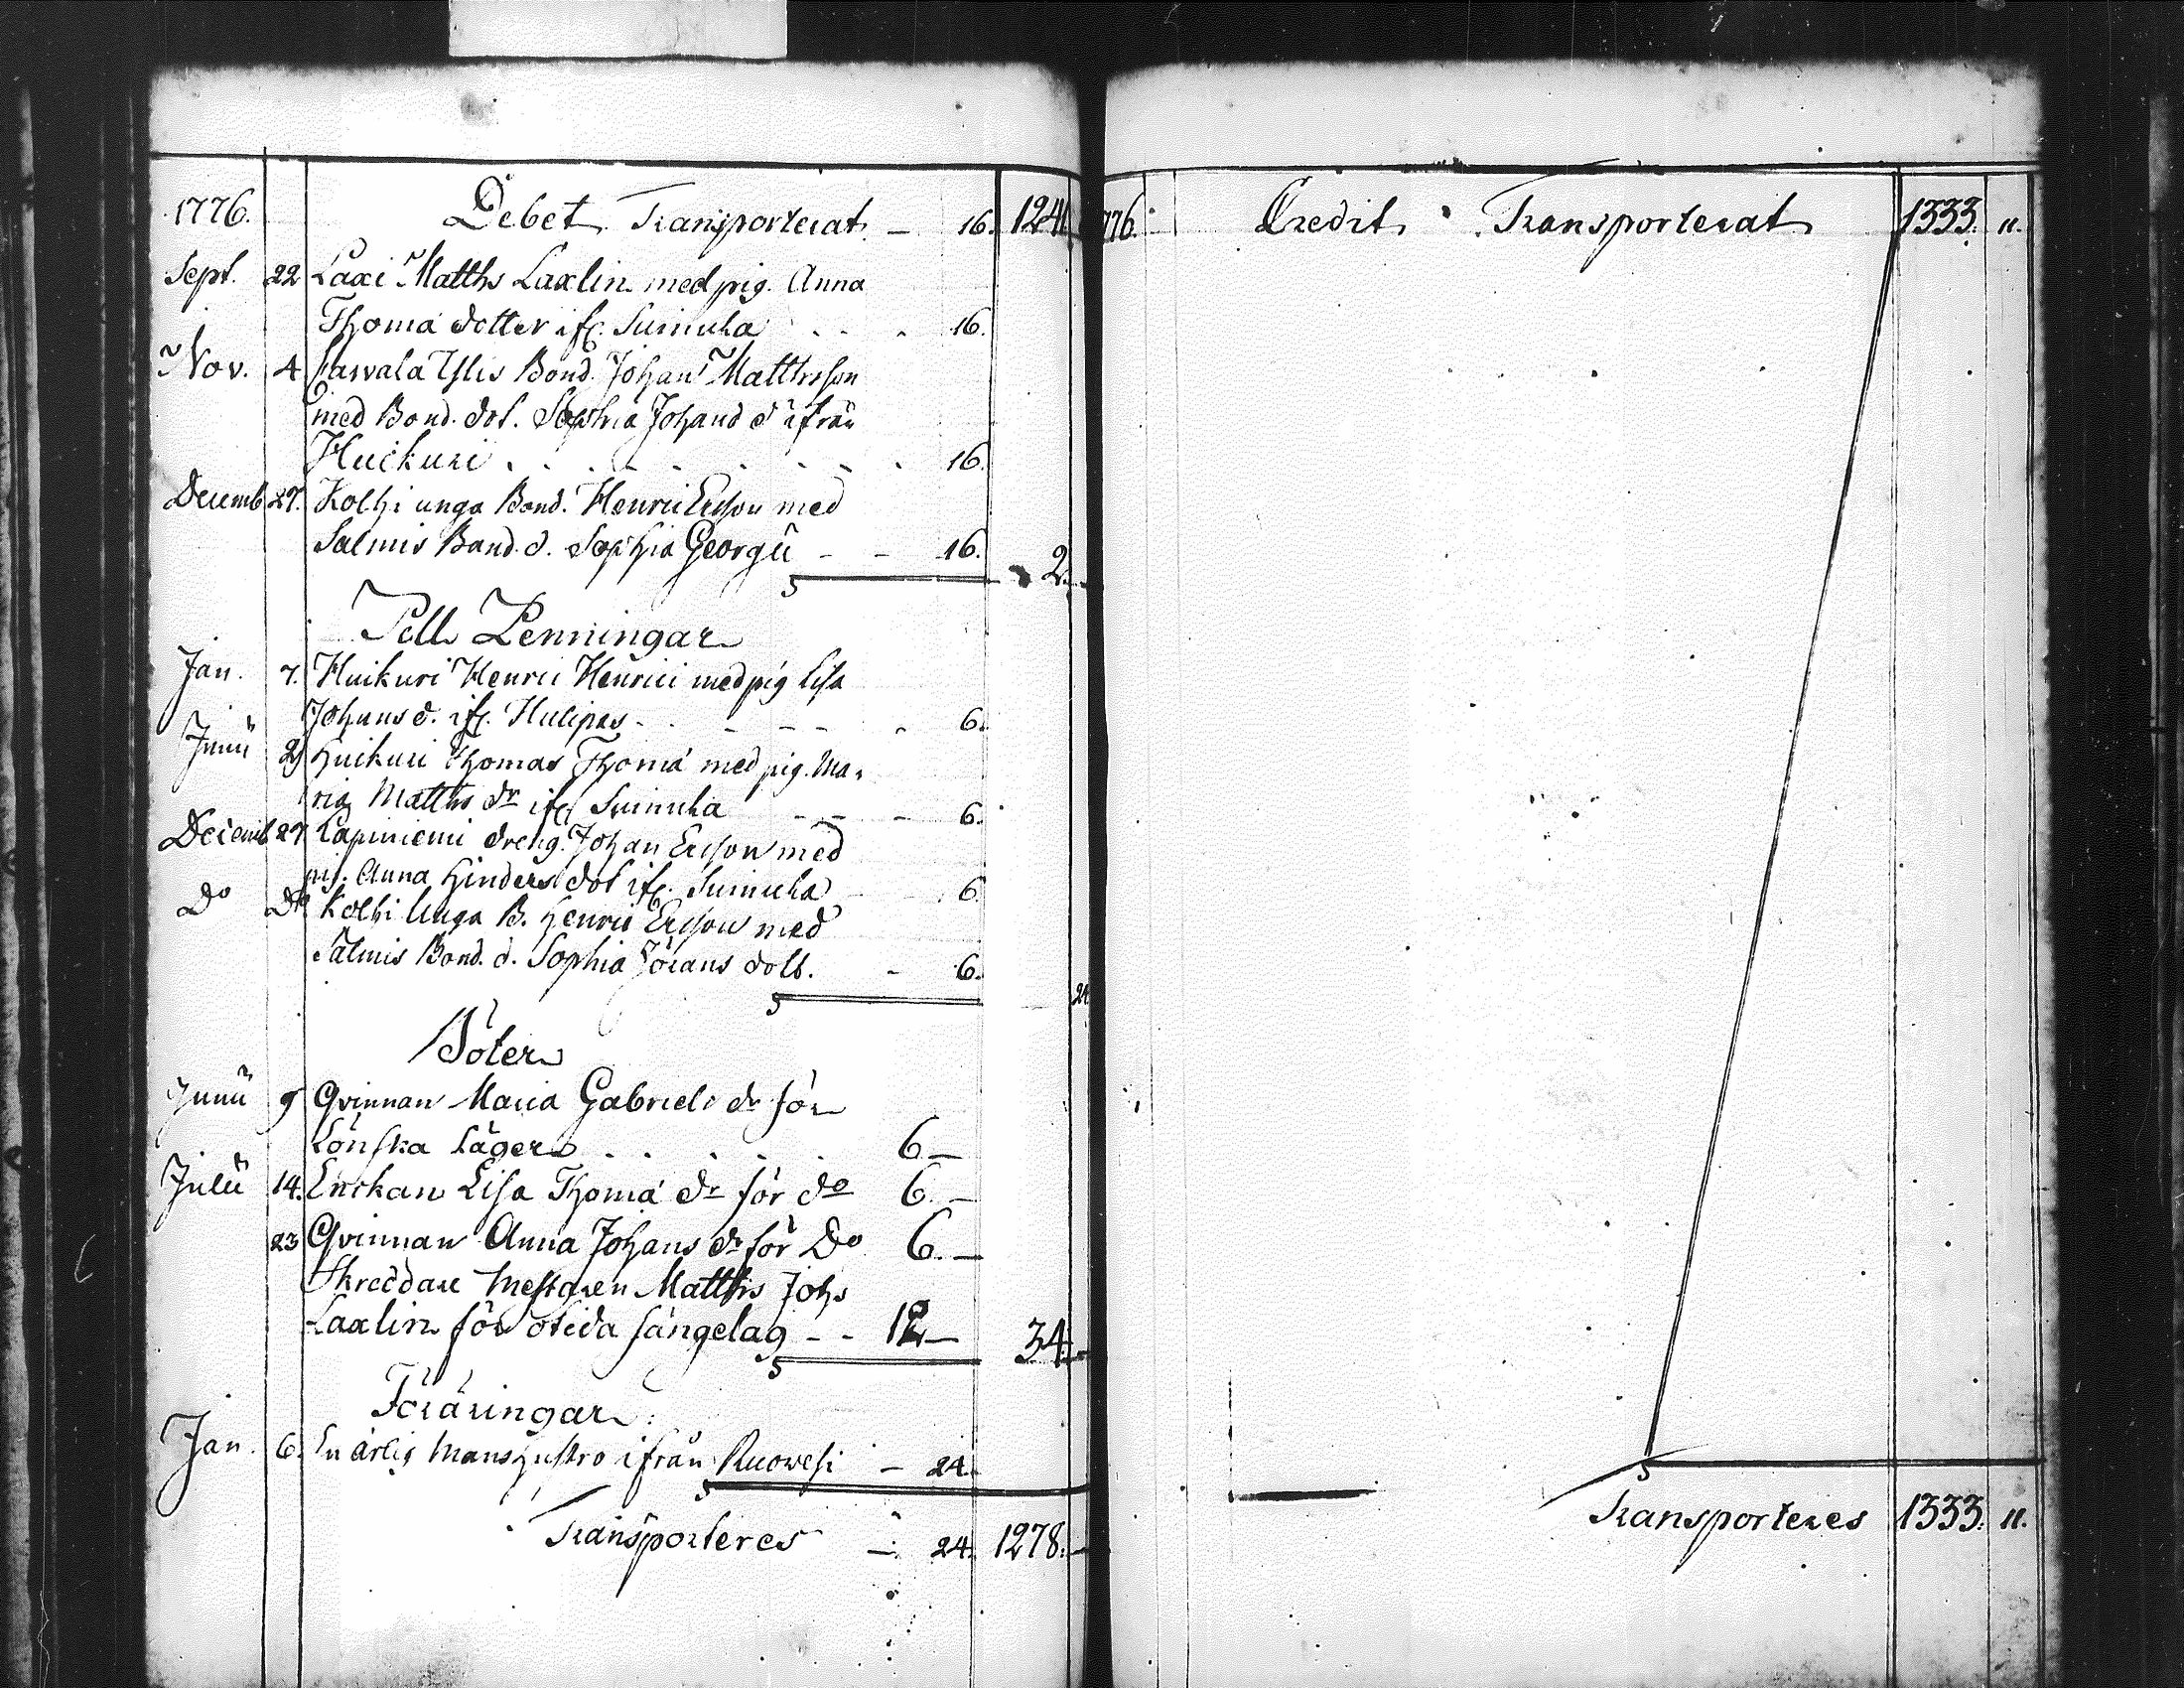 1776. Debet Transporterat – 16. 1241
Sept. 22 Laxi Matths Laxlin med pig. Anna
Thomæ dotter ifr. Suinula . . . 16.
Nov. 4 Bond. Johan Matthsson
med Bond. dot. Sophia Johans d ifrån
Huikuri . . . . . . . 16.
Decemb 27. Kolhi unga Bond. Henric Ersson med
Salmis Bond. d. Sophia Georgii – – 16. 2.
Pell Penningar
Jan. 7. Huikuri Henric Henrici med pig Lisa
Johans d. ifr. - - - - 6.
Junii 29 Huikuri Thomas Thomæ med pig. Ma-
ria Matths dr ifr Suinula - - - 6.
Decemb 27. Lapiniemi dreng. Johan Ersson med
pig. Anna Hinders dot ifr. Suinula - 6.
Do Do Kolhi Unga B. Henric Ersson med
Salmis Bond. d. Sophia Jörans dott. - 6.
24
Böter
Junii 9 Qvinnan Maria Gabriels dr för
Lönska Läger . . . . 6 –
Julii 14. Enckan Lisa Thomæ dr för do 6. –
23 Qvinnan Anna Johans dr för Do 6. –
Skreddare Mestaren Matths Johs
Laxlin för otida sängelag - - 12 – 34. –
Föräringar
Jan. 6. En ärlig Mans hustro ifrån Ruowesi – 24.
Transporteres –. 24. 1278. –
776. Credit Transporterat 1333. 11.
Transporteres 1333. 11.